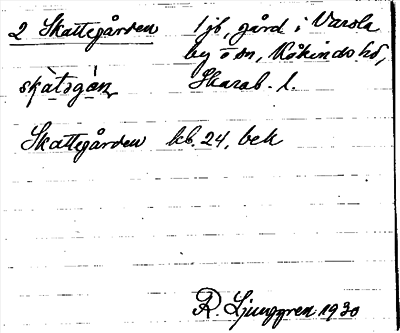 2 Skattegården 1 jb, gård i Varola
by o sn, Kåkinds hd,
skàtəgá̀n Skarab. l.
Skattegården kb. 24, bek
R. Ljunggren 1930